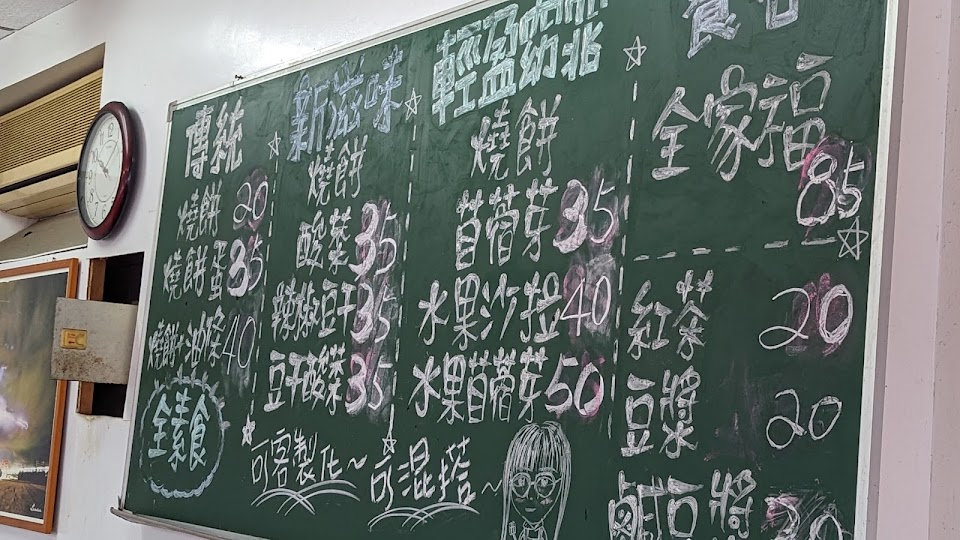 傳統
燒餅 20
燒餅蛋 35
燒餅+油條 40
全素食
新滋味
燒餅
酸菜 35
辣椒豆干 35
豆干酸菜 35
輕盈
燒餅
苜蓿芽 35
水果沙拉 40
水果苜蓿芽 50
可客製化~可混搭~
全家福
85
紅茶 20
豆漿 20
鹹豆漿